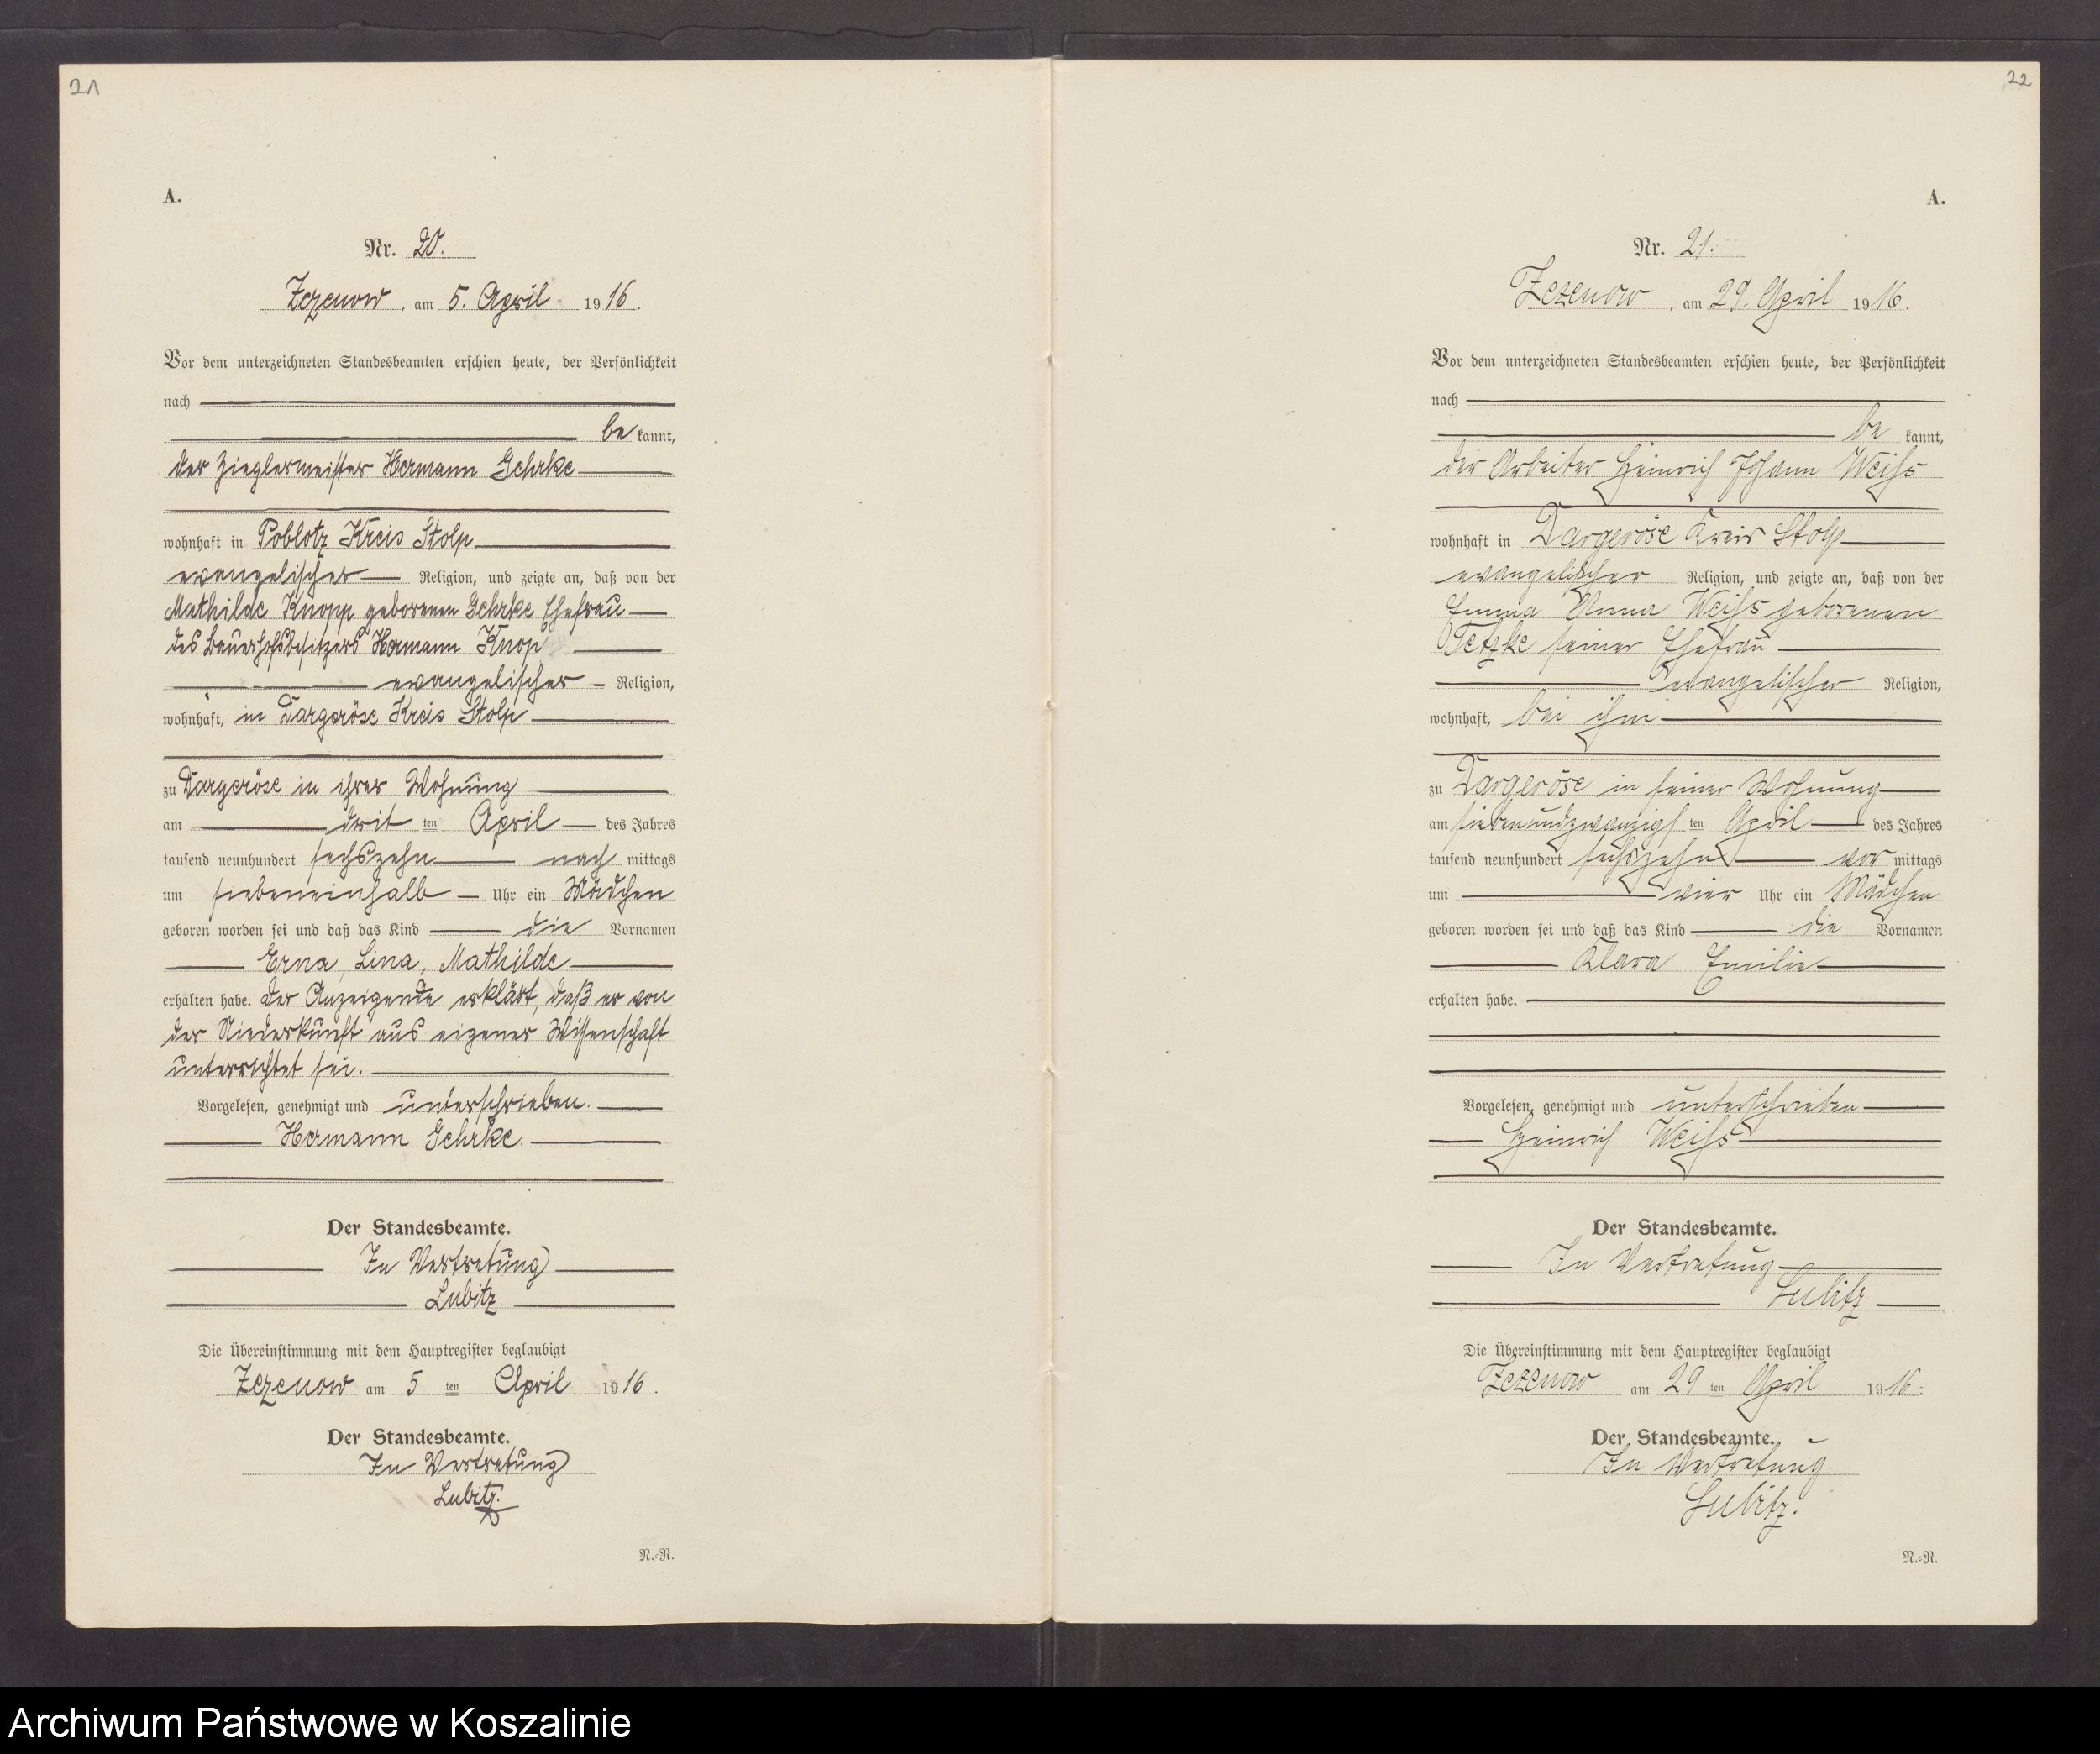 21
A.
Nr. 20.
Zezenow, am 5. April 1916.
Vor dem unterzeichneten Standesbeamten erschien heute, der Persönlichkeit
nach
be kannt,
der Zieglermeister Hermann Gehrke
wohnhaft in Poblotz Kreis Stolp
evangelischer Religion, und zeigte an, daß von der
Mathilde Knopp geborenen Gehrke Ehefrau
des Bauerhofsbesitzers Hermann Knop
evangelischer Religion,
wohnhaft, in Dargeröse Kreis Stolp
zu Dargeröse in ihrer Wohnung
am drit ten April des Jahres
tausend neunhundert sechszehn nach mittags
um siebeneinhalb Uhr ein Mädchen
geboren worden sei und daß das Kind die Vornamen
Erna, Lina, Mathilde
erhalten habe. Der Anzeigende erklärt, daß er von
der Niederkunft aus eigener Wissenschaft
unterrichtet sei.
Vorgelesen, genehmigt und unterschrieben.
Hermann Gehrke.
Der Standesbeamte.
In Vertretung
Lubitz.
Die Übereinstimmung mit dem Hauptregister beglaubigt
Zezenow am 5 ten April 1916.
Der Standesbeamte.
In Vertretung
Lubitz.
N.=N.
22
A.
Nr. 21.
Zezenow, am 29. April 1916.
Vor dem unterzeichneten Standesbeamten erschien heute, der Persönlichkeit
nach
be kannt,
der Arbeiter Heinrich Johann Weiß
wohnhaft in Dargeröse Kreis Stolp
evangelischer Religion, und zeigte an, daß von der
Emma Anna Weiß geborenen
Tetzke seiner Ehefrau
evangelischer Religion,
wohnhaft, bei ihm
zu Dargeröse in seiner Wohnung
am siebenundzwanzigs ten April des Jahres
tausend neunhundert sechszehn vor mittags
um vier Uhr ein Mädchen
geboren worden sei und daß das Kind die Vornamen
Klara Emilie
erhalten habe.
Vorgelesen, genehmigt und unterschrieben
Heinrich Weiß
Der Standesbeamte.
In Vertretung
Lubitz
Die Übereinstimmung mit dem Hauptregister beglaubigt
Zezenow am 29 ten April 1916:
Der Standesbeamte.
In Vertretung
Lubitz.
N.=N.
Archiwum Państwowe w Koszalinie